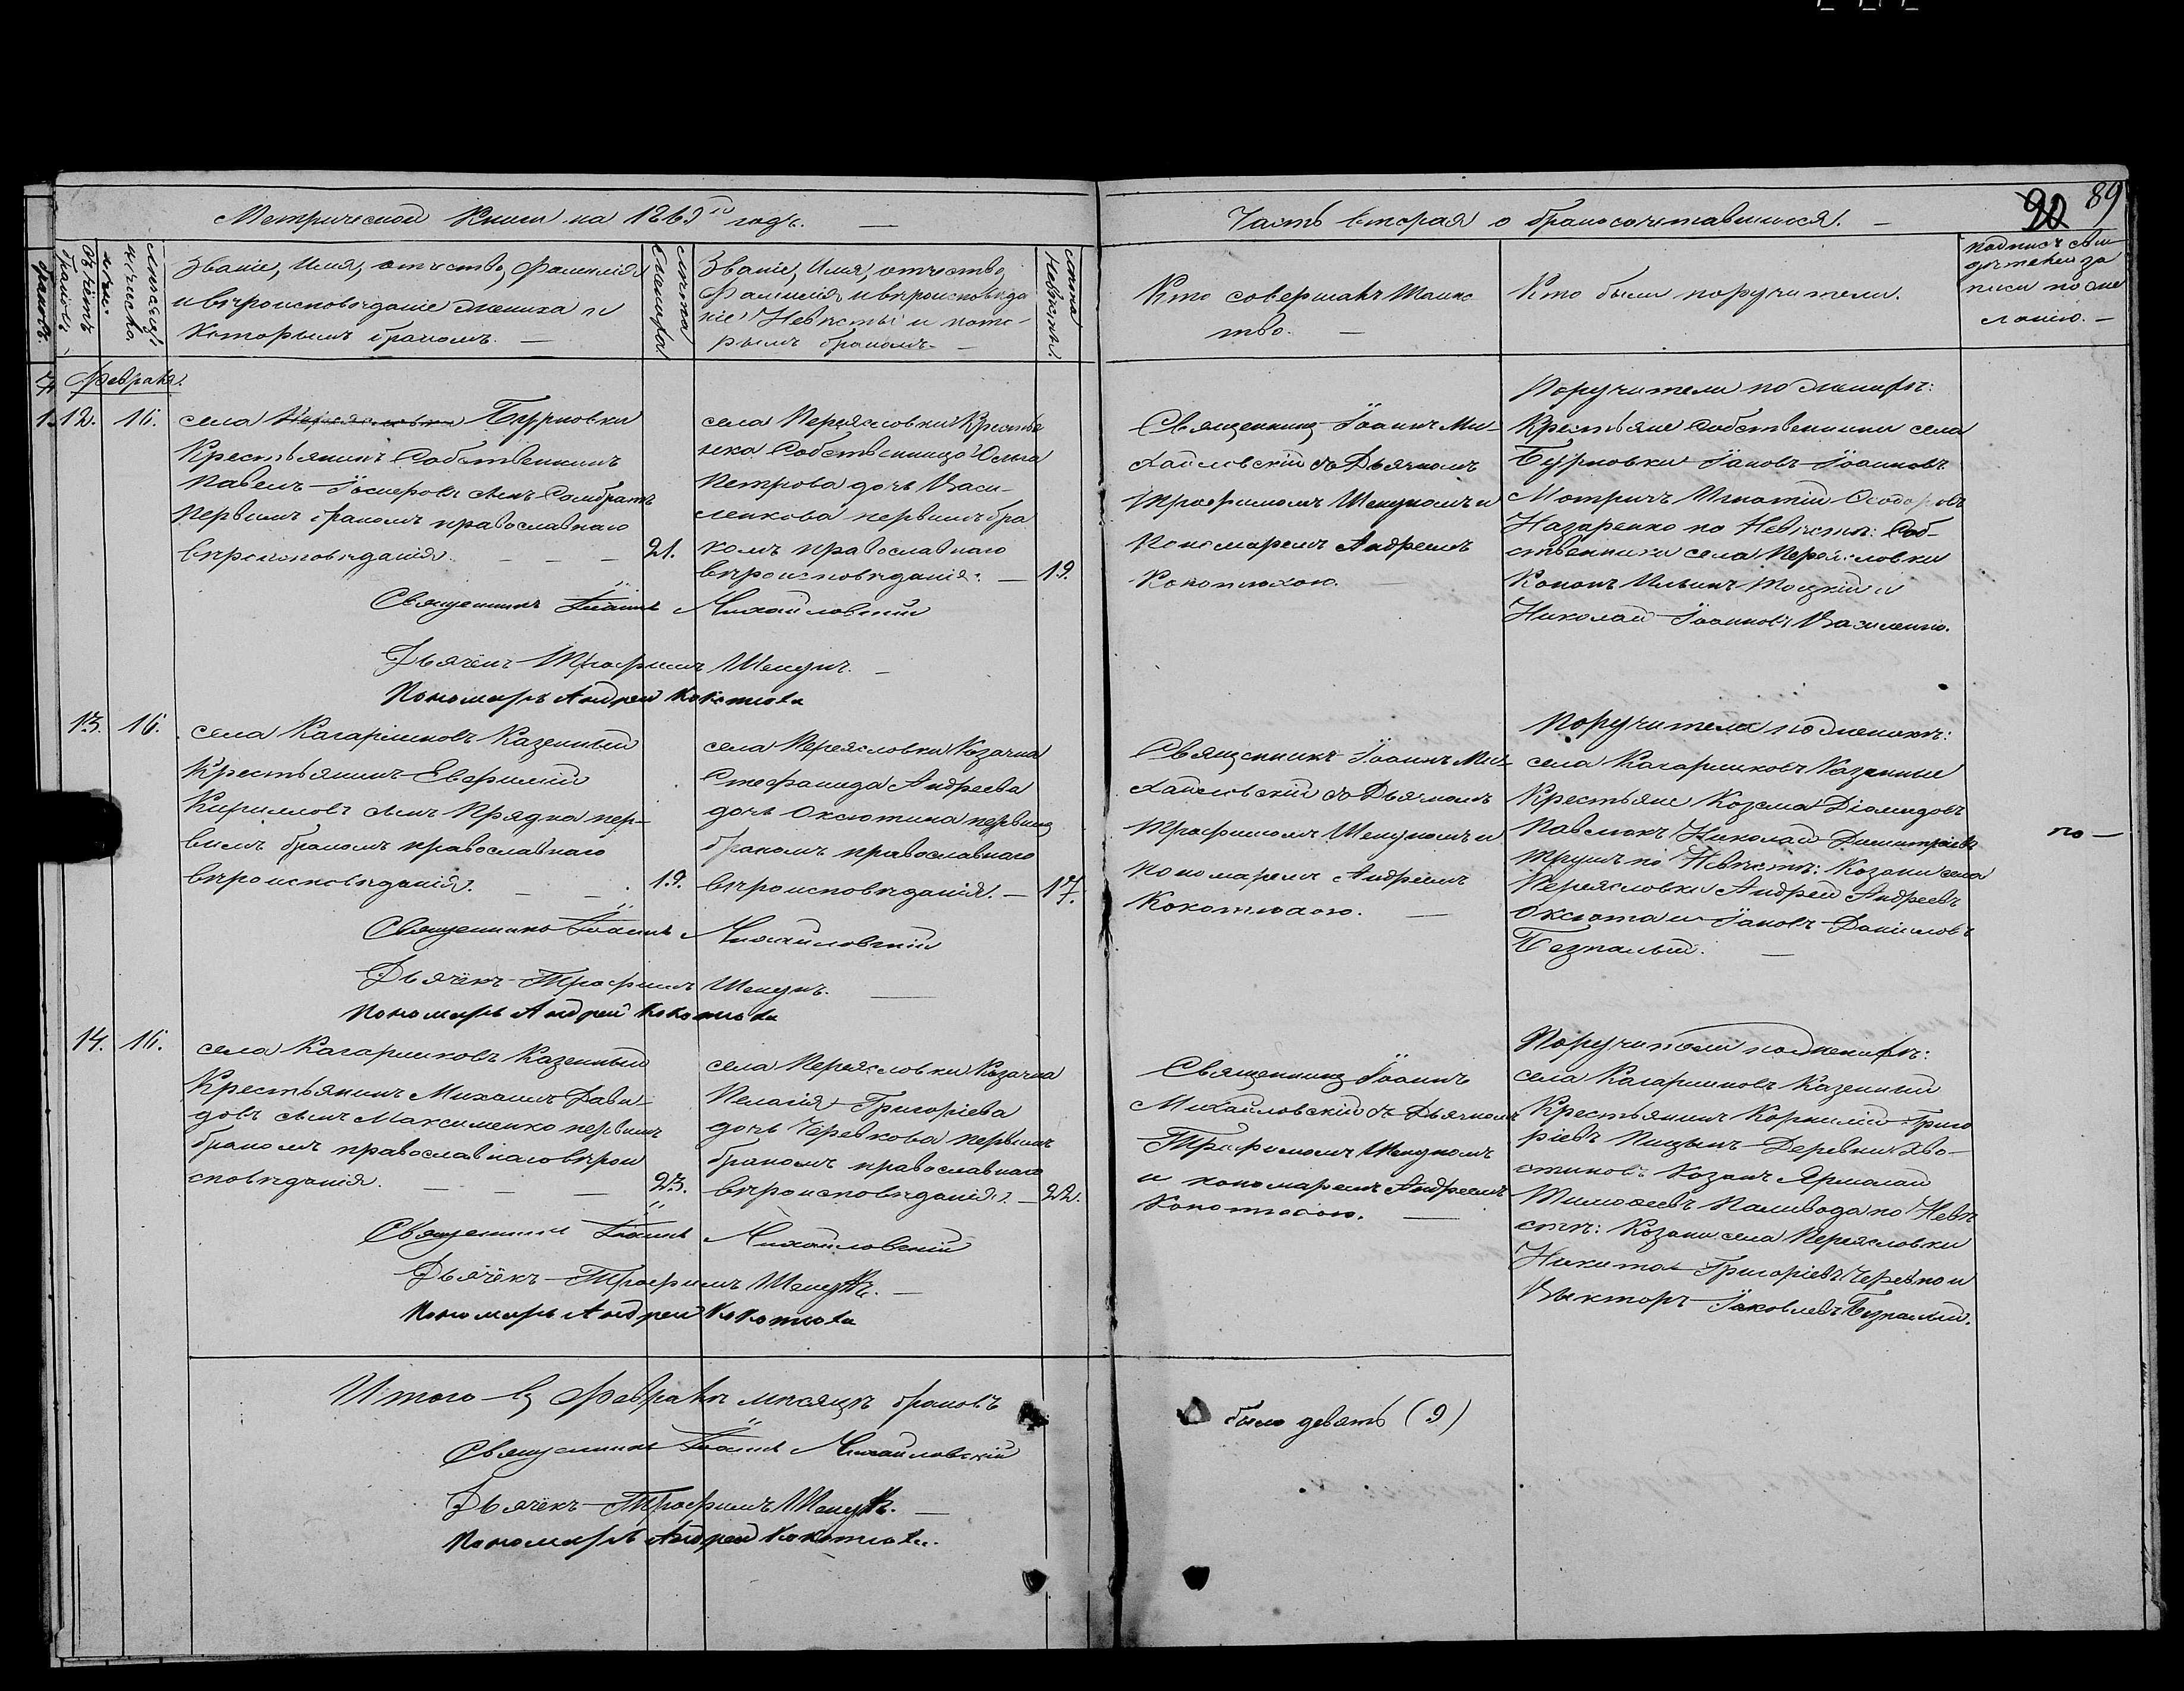 90 89
Метрической Книги на 1869го годъ.
Часть вторая о бракосочетавшихся.
Счетъ браковъ.
Мѣсяцъ и число.
Званіе, Имя, отчество, фамилія
и вѣроисповѣданіе жениха и
которымъ бракомъ.
Лѣта Жениха.
Званіе, Имя, отчество,
Фамилія и вѣроисповѣда
ніе Невѣсты и кото-
рымъ бракомъ.
Лѣта Невѣсты.
Кто совершалъ Таинс
тво.
Кто были поручители.
Подпись сви
дѣтелей за
писи по же
ланію.
Февраля.
12. 16.
села Бурновки
Крестьянинъ Собственникъ
Павелъ Іосифовъ сынъ Самбратъ
первымъ бракомъ православнаго
вѣроисповѣданія. 21.
села Переясловки Крестья
нка Собственница Ольга
Петрова дочь Васи-
ленкова первымъ бра
комъ православнаго
вѣроисповѣданія. 19.
Священникъ Іоаннъ Ми-
хайловскій съ Дьячкомъ
Трофимомъ Шендкомъ и
Пономаремъ Андреемъ
Кокотюхою.
Поручители по женихѣ:
Крестьяне Собственники села
Бурновки Іаковъ Іоанновъ
Мотричъ Игнатій Ѳеодоровъ
Назаренко по Невѣстѣ: Соб-
ственники села Переясловки
Кононъ Ильинъ Тоцкій и
Николай Іоанновъ Василенко.
Священникъ Іоаннъ Михайловскій
Дьячёкъ Трофимъ
Пономарь Андрей Кокотюха
13. 16.
села Кагарликовъ Казенный
Крестьянинъ Евфимій
Кирилловъ сынъ Прядка пер-
вымъ бракомъ православнаго
вѣроисповѣданія. 19.
села Переясловки Козачка
Стефанида Андреева
дочь Оксютина первымъ
бракомъ православнаго
вѣроисповѣданія. 17.
Священникъ Іоаннъ Ми-
хайловскій съ Дьячкомъ
Трофимомъ Шендкомъ и
пономаремъ Андреемъ
Кокотюхою.
Поручители по женихѣ:
села Кагарликовъ Казенные
Крестьяне Козма Діомидовъ
Павлюкъ Николай Димитріевъ
по Невѣстѣ: Козаки села
Переясловки Андрей Андреевъ
Оксюта и Іаковъ Даниловъ
Безпалый.
по
Священникъ Іоаннъ Михайловскій
Дьячёкъ Трофимъ
Пономарь Андрей Кокотюха
14. 16.
села Кагарликовъ Казенный
Крестьянинъ Михаилъ Дави-
довъ сынъ Максименко первымъ
бракомъ православнаго вѣрои
сповѣданія. 23.
села Переясловки Козачка
Пелагія Григоріева
дочь Черевкова первымъ
бракомъ православнаго
вѣроисповѣданія. 22.
Священникъ Іоаннъ
Михайловскій съ Дьячкомъ
Трофимомъ Шендкомъ
и пономаремъ Андреемъ
Кокотюхою.
Поручители по женихѣ:
села Кагарликовъ Казенный
Крестьянинъ Корнилій Григо
ріевъ Деревни Хво-
стиковъ Козакъ Ярмолай
Тимоѳеевъ Паливода по Невѣ
стѣ: Козаки села Переясловки
Никита Григоріевъ Черевко и
Викторъ Іаковлевъ Безпалый.
Священникъ Іоаннъ Михайловскій
Дьячёкъ Трофимъ
Пономарь Андрей Кокотюха
Итого въ Февралѣ мѣсяцѣ браковъ
было девять (9)
Священникъ Іоаннъ Михайловскій
Дьячёкъ Трофимъ
Пономарь Андрей Кокотюха.